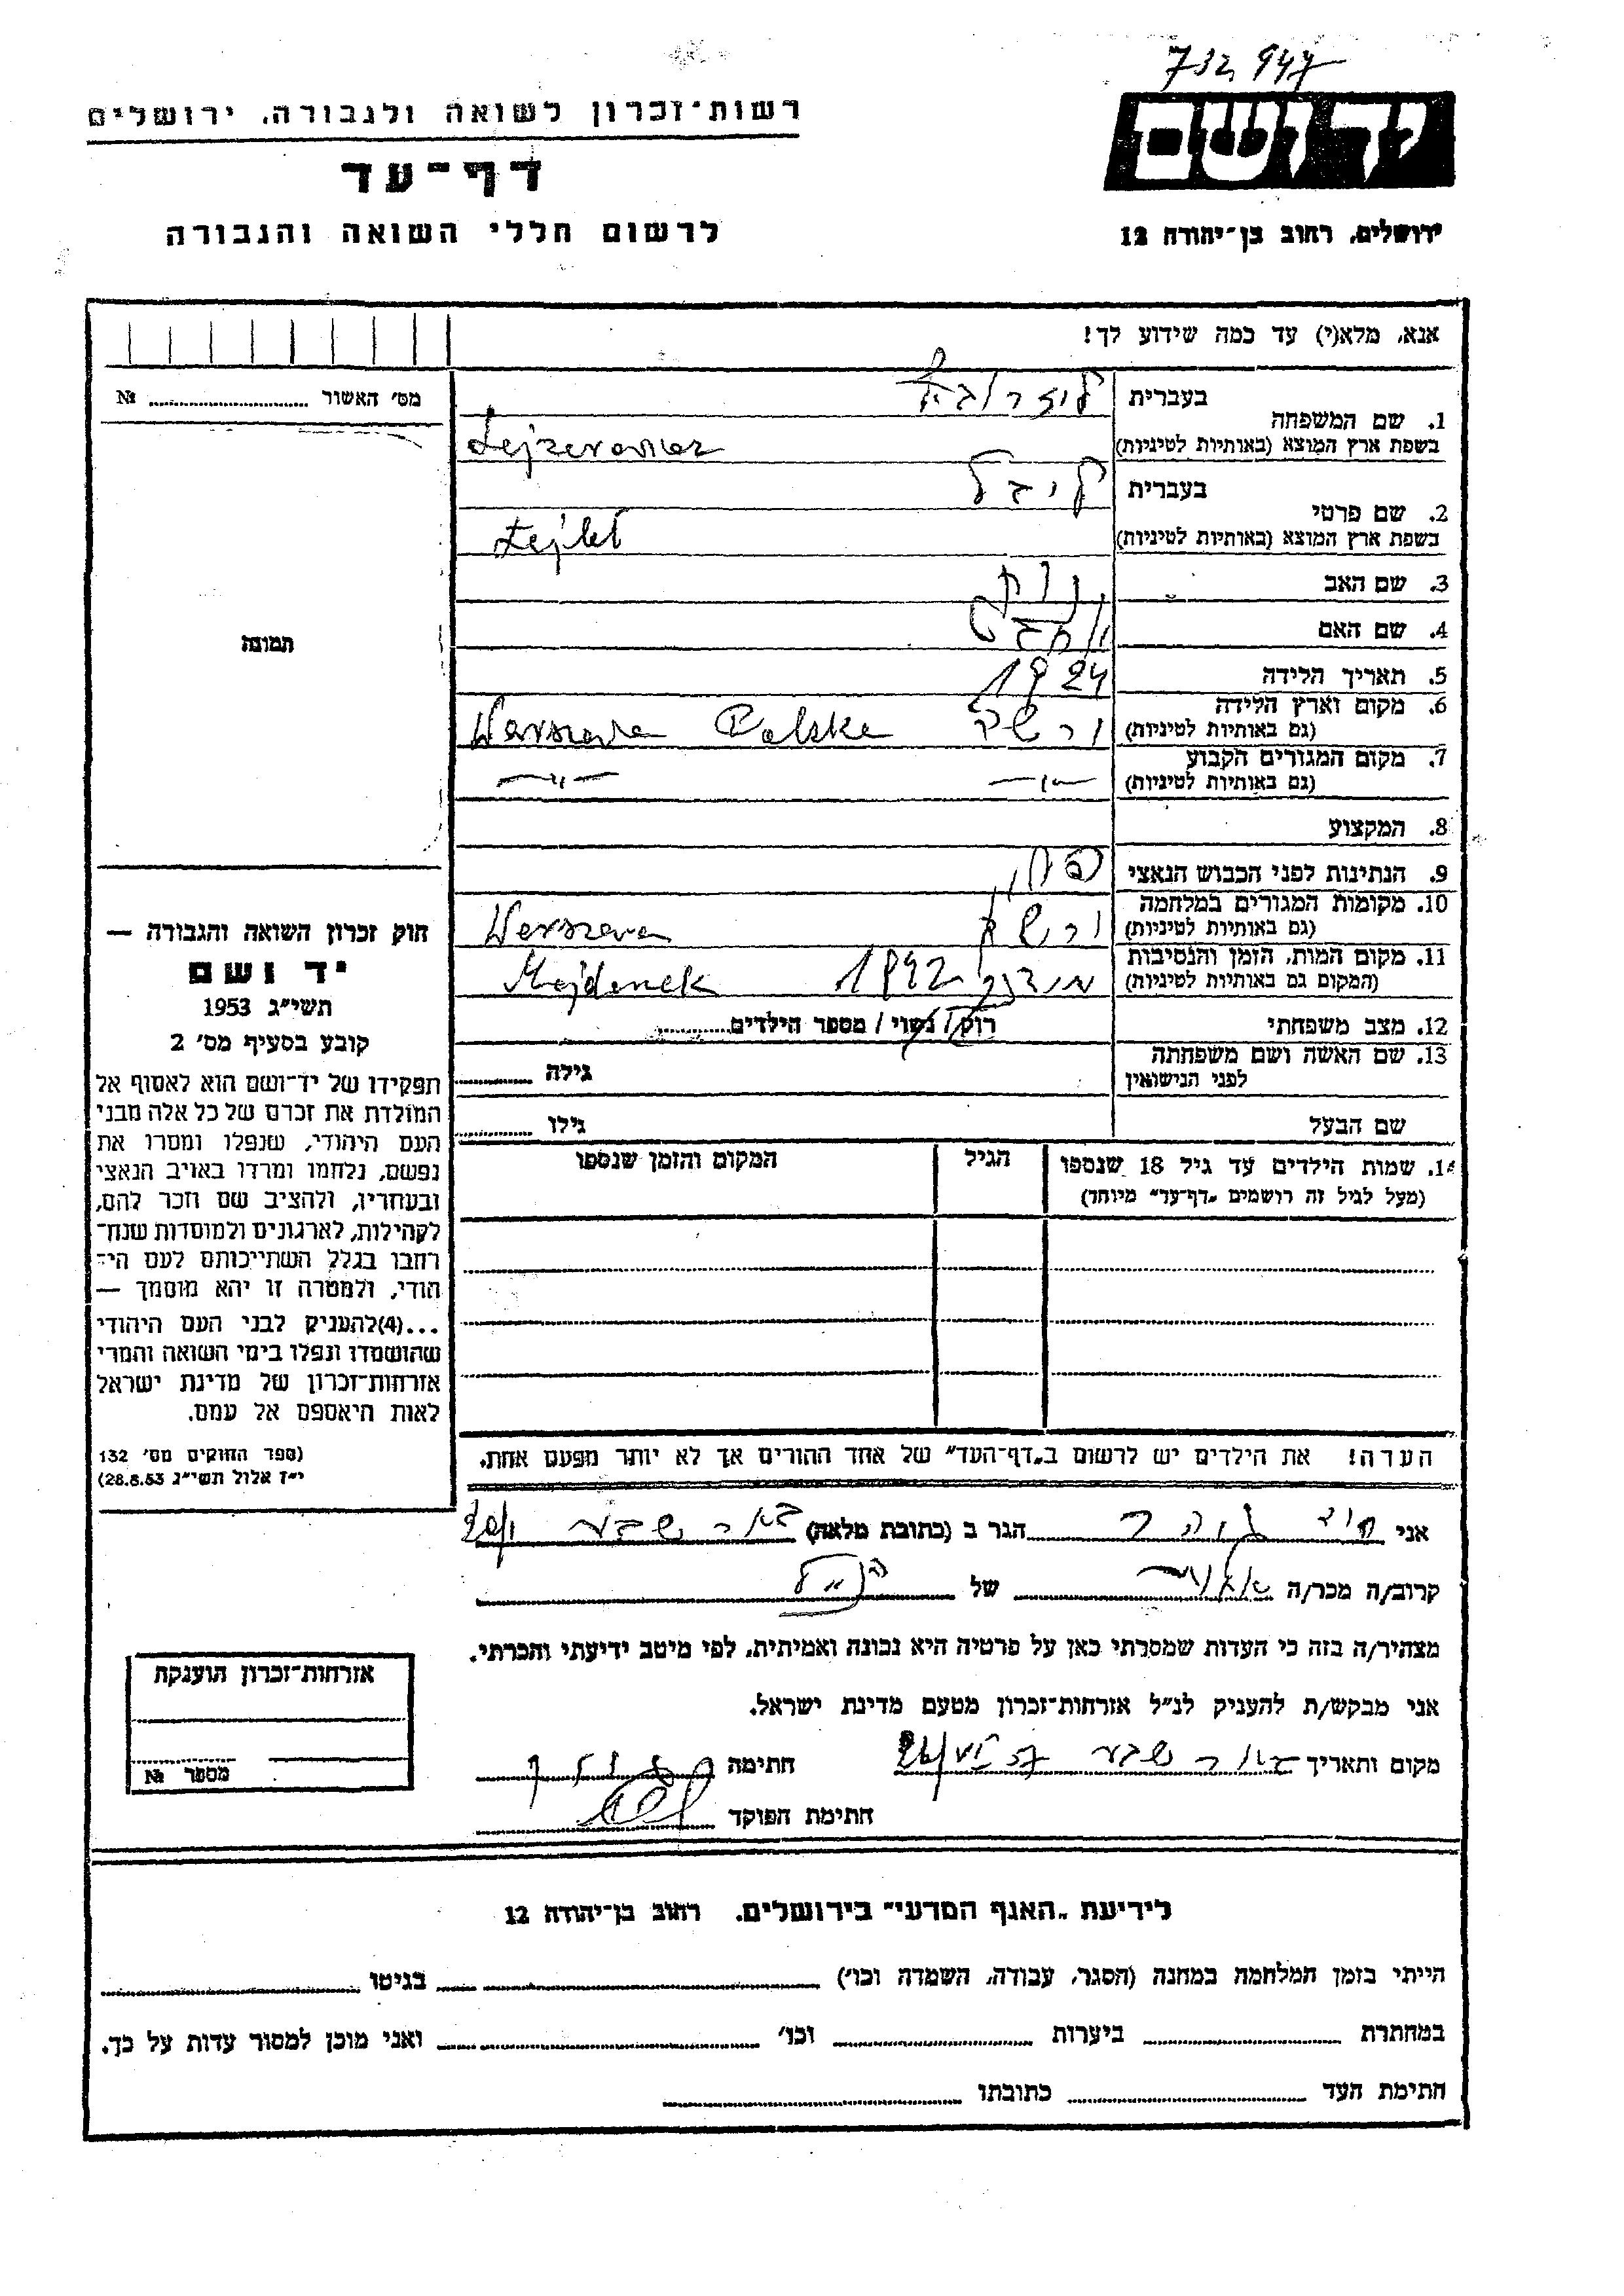 732 947
רשות־זכרון לשואה ולגבורה, ירושלים
יד ושם
דף־עד
לרשום חללי השואה והגבורה
ירושלים, רחוב בן־יהודה 12
אנא, מלא(י) עד כמה שידוע לך!
מס׳ האשור № 
1. שם המשפחה
בעברית
בשפת ארץ המוצא (באותיות לטיניות) Lejzerowicz
2. שם פרטי
בעברית לייבל
בשפת ארץ המוצא (באותיות לטיניות) Lejbel
3. שם האב
4. שם האם
5. תאריך הלידה 1924
6. מקום וארץ הלידה
(גם באותיות לטיניות) ורשה Warszawa Polska
7. מקום המגורים הקבוע
(גם באותיות לטיניות) —"— —"—
8. המקצוע
9. הנתינות לפני הכבוש הנאצי
10. מקומות המגורים במלחמה
(גם באותיות לטיניות) ורשה Warszawa
11. מקום המות, הזמן והנסיבות
(המקום גם באותיות לטיניות) מידנק 1942 Majdanek
12. מצב משפחתי רוק/ נשוי / מספר הילדים
13. שם האשה ושם משפחתה
לפני הנישואין גילה
שם הבעל גילו
14. שמות הילדים עד גיל 18 שנספו הגיל המקום והזמן שנספו
(מעל לגיל זה רושמים „דף־עד" מיוחד)
הערה! את הילדים יש לרשום ב„דף־העד" של אחד ההורים אך לא יותר מפעם אחת.
תמונה
חוק זכרון השואה והגבורה —
יד ושם
תשי״ג 1953
קובע בסעיף מס׳ 2
תפקידו של יד־ושם הוא לאסוף אל
המולדת את זכרם של כל אלה מבני
העם היהודי, שנפלו ומסרו את
נפשם, נלחמו ומרדו באויב הנאצי
ובעוזריו, ולהציב שם וזכר להם,
לקהילות, לארגונים ולמוסדות שנח־
רבו בגלל השתייכותם לעם הי־
הודי, ולמטרה זו יהא מוסמך —
...(4)להעניק לבני העם היהודי
שהושמדו ונפלו בימי השואה והמרי
אזרחות־זכרון של מדינת ישראל
לאות היאספם אל עמם.
(ספר החוקים מס׳ 132
י״ז אלול תשי״ג 28.8.53)
אני הגר ב (כתובת מלאה) באר שבע
קרוב/ה מכר/ה של הנ"ל
מצהיר/ה בזה כי העדות שמסרתי כאן על פרטיה היא נכונה ואמיתית, לפי מיטב ידיעתי והכרתי.
אני מבקש/ת להעניק לנ״ל אזרחות־זכרון מטעם מדינת ישראל.
מקום ותאריך באר שבע 26/VI 57 חתימה
חתימת הפוקד
אזרחות־זכרון הוענקה
מספר №
לידיעת „האגף המדעי" בירושלים, רחוב בן־יהודה 12
הייתי בזמן המלחמה במחנה (הסגר, עבודה, השמדה וכו׳) בגיטו
במחתרת ביערות וכו׳ ואני מוכן למסור עדות על כך.
חתימת העד כתובתו